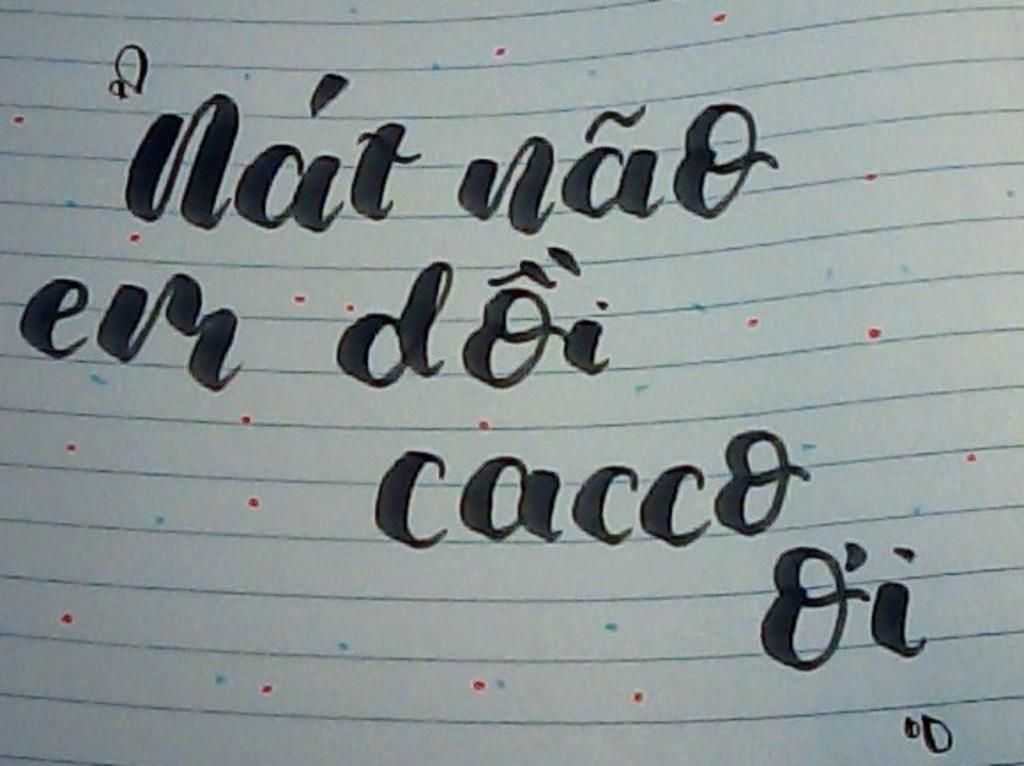 Nát não
em dồi
cacco
ơi